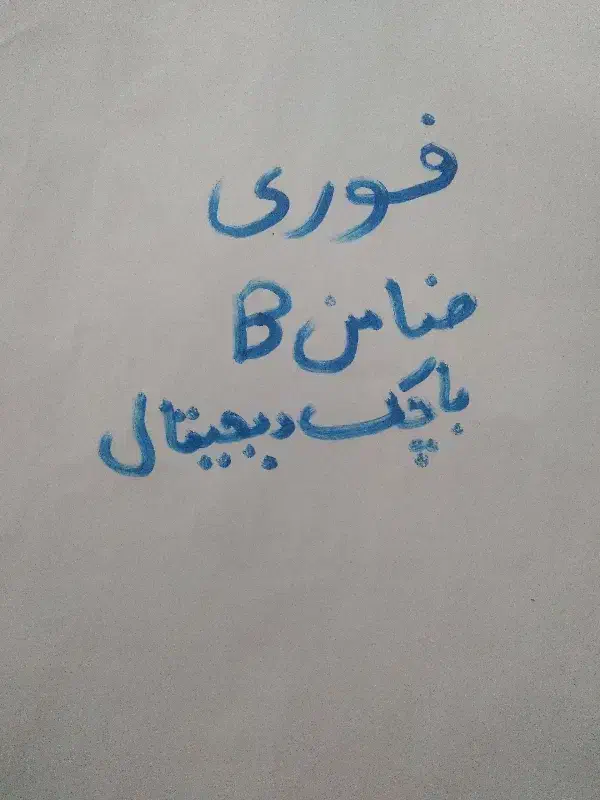 فوری
ضامن B
با چک دیجیتال